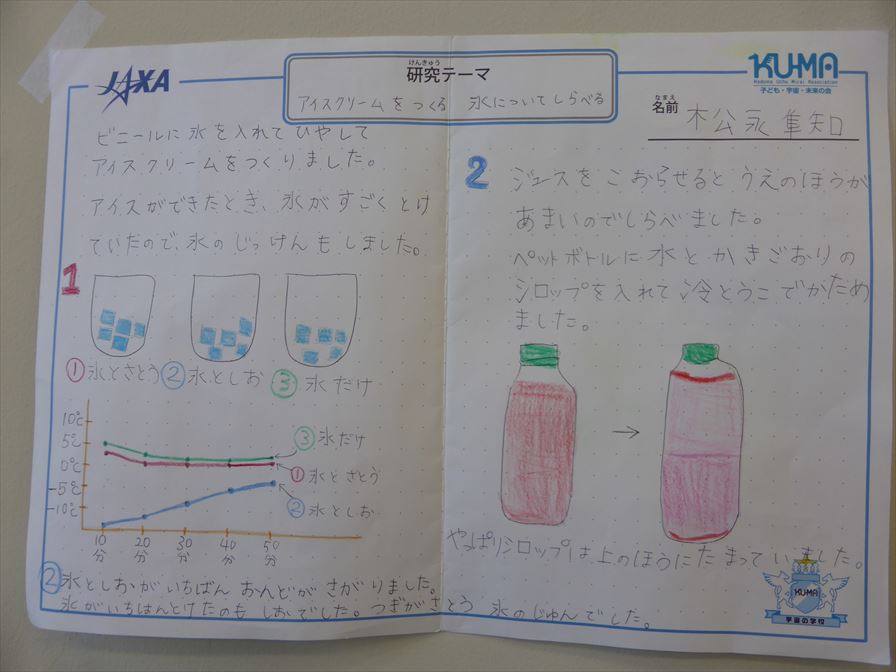 JAXA
けんきゅう
研究テーマ
アイスクリームをつくる 氷についてしらべる
KU-MA
Kodomo Uchu Mirai Association
子ども・宇宙・未来の会
なまえ
名前 松永 隼知
ビニールに氷を入れてひやして
アイスクリームをつくりました。
アイスができたとき、氷がすごくとけ
ていたので、氷のじっけんもしました。
1
①氷とさとう ②氷としお ③氷だけ
10℃
5℃
0℃
-5℃
-10℃
③氷だけ
①氷とさとう
②氷としお
10分 20分 30分 40分 50分
②氷としおがいちばん おんどが さがりました。
氷がいちばんとけたのも しおでした。つぎがさとう 氷のじゅんでした。
2
ジュースをこおらせると うえのほうが
あまいのでしらべました。
ペットボトルに水とかきごおりの
シロップを入れて冷とうこでかため
ました。
→
やっぱりシロップは上のほうにたまっていました。
KU-MA
宇宙の学校